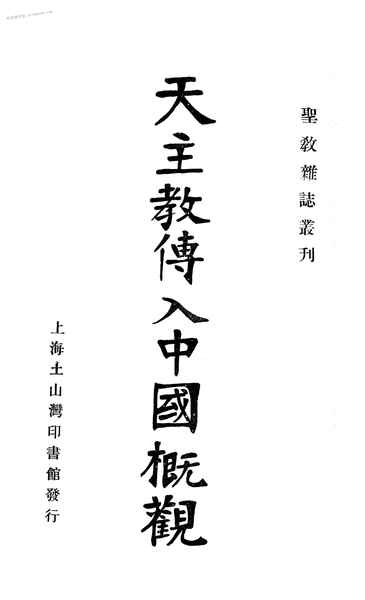 聖教雜誌叢刊
天主教傳入中國概觀
上海土山灣印書館發行